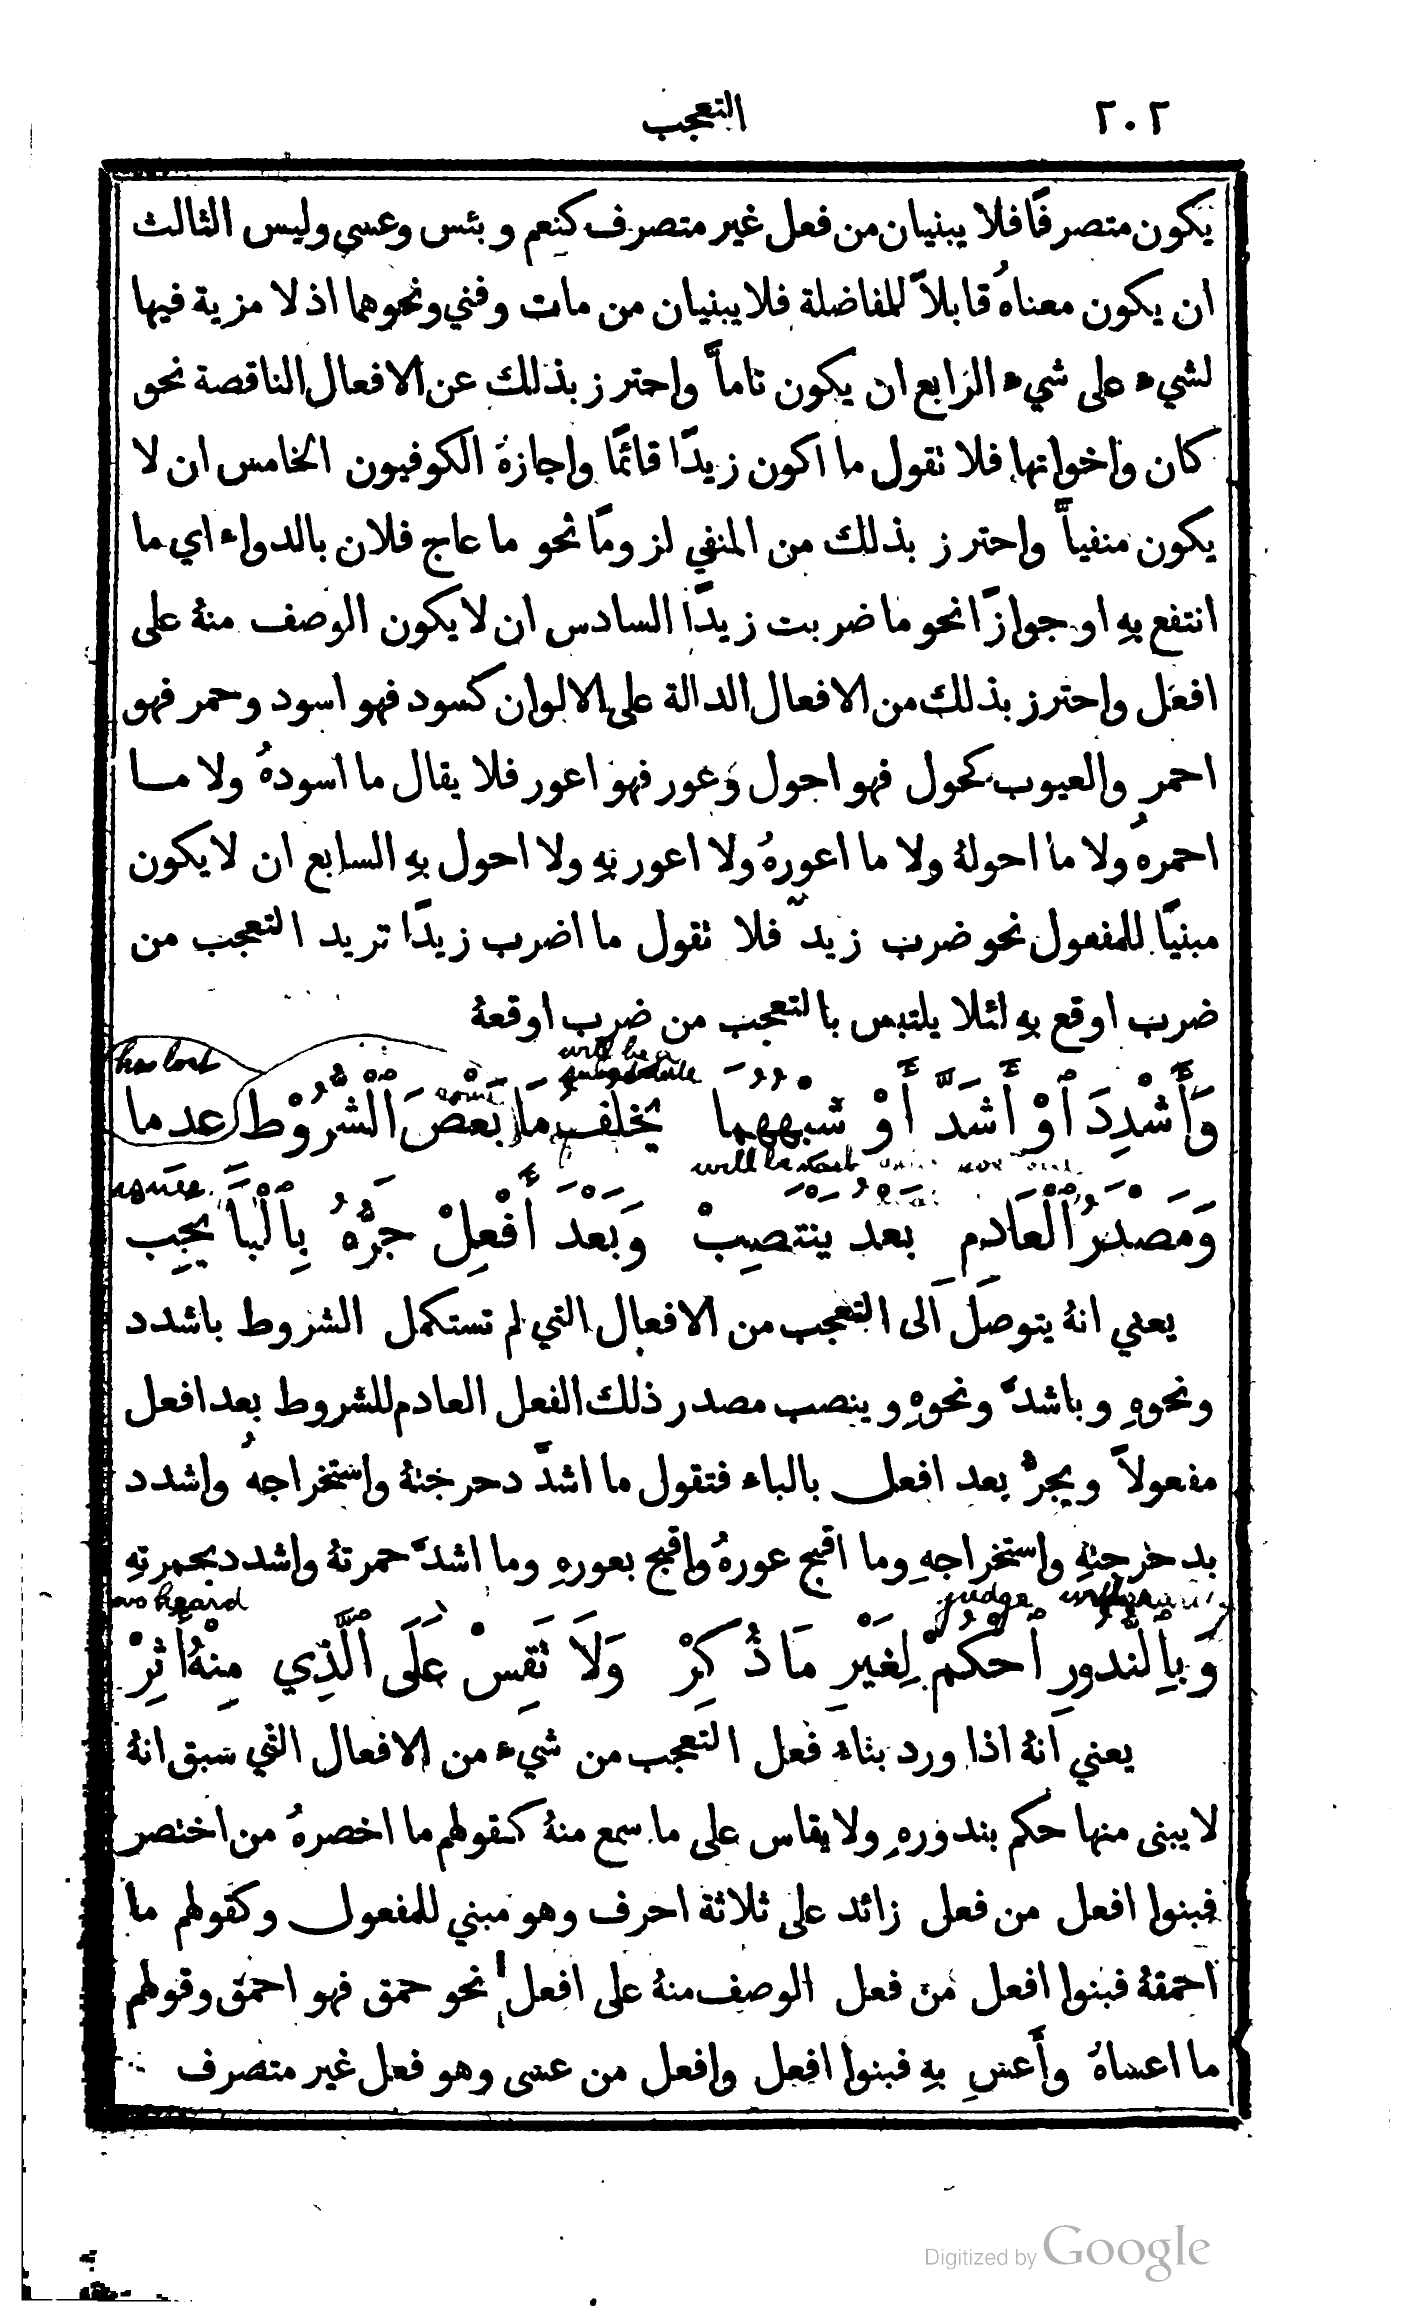 ٢٠٢
التعجب
يكون متصرفًا فلا يبنيان من فعل غير متصرف كنعم وبئس وعسى وليس الثالث
ان يكون معناهُ قابلاً للمفاضلة فلا يبنيان من مات وفني ونحوهما اذ لا مزية فيها
لشيء على شيء الرابع ان يكون تاماً واحترز بذلك عن الافعال الناقصة نحو
كان واخواتها فلا تقول ما اكون زيدًا قائمًا واجازهُ الكوفيون الخامس ان لا
يكون منفياً واحترز بذلك من المنفي لزومًا نحو ما عاج فلان بالدواء اي ما
انتفع بهِ او جوازًا نحو ما ضربت زيدًا السادس ان لا يكون الوصف منهُ على
افعل واحترز بذلك من الافعال الدالة على الالوان كسود فهو اسود وحمر فهو
احمر والعيوب كحول فهو احول وعور فهو اعور فلا يقال ما اسودهُ ولا مــا
احمرهُ ولا ما احولهُ ولا ما اعورهُ ولا اعور بهِ ولا احول بهِ السابع ان لا يكون
مبنيًا للمفعول نحو ضرب زيد فلا تقول ما اضرب زيدًا تريد التعجب من
ضرب اوقع بهِ لئلا يلتبس بالتعجب من ضرب اوقعهُ
has lost will be a
some
وَأَشْدِدَ ٱوْ أَشَدَّ أَوْ شِبْهُهُمَا يَخْلُفُ مَا بَعْضَ ٱلْشُّرُوْطِ عَدِمَا
will be
وَمَصْدَرُ ٱلْعَادِمِ بَعْدُ يَنْتَصِبْ وَبَعْدَ أَفْعِلْ جَرُّهُ بِٱلْبَا يَجِبْ
يعني انهُ يتوصل الى التعجب من الافعال التي لم تستكمل الشروط باشدد
ونحوهِ وباشدّ ونحوهِ وينصب مصدر ذلك الفعل العادم للشروط بعد افعل
مفعولاً ويجرُّ بعد افعل بالباء فتقول ما اشدَّ دحرجتهُ واستخراجهُ واشدد
بدحرجتهِ واستخراجهِ وما اقبح عورهُ واقبح بعورهِ وما اشدَّ حمرتهُ واشدد بحمرتهِ
heard judge
وَبِٱلنُّدُورِ ٱحْكُمْ لِغَيْرِ مَا ذُكِرْ وَلَا تَقِسْ عَلَى ٱلَّذِي مِنْهُ أُثِرْ
يعني انهُ اذا ورد بناء فعل التعجب من شيء من الافعال التي سبق انهُ
لا يبنى منها حكم بندورهِ ولا يقاس على ما سمع منهُ كقولهم ما اخصرهُ من اختصر
فبنوا افعل من فعل زائد على ثلاثة احرف وهو مبني للمفعول وكقولهم ما
احمقهُ فبنوا افعل من فعل الوصف منهُ على افعل نحو حمق فهو احمق وقولهم
ما اعساهُ وأعسِ بهِ فبنوا افعل وافعل من عسى وهو فعل غير متصرف
Digitized by Google